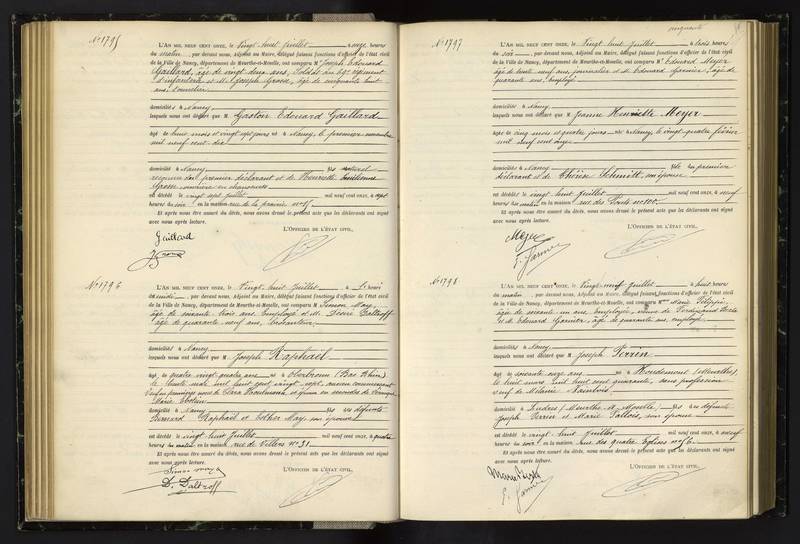 No 1795
L'AN MIL NEUF CENT ONZE, le Vingt huit juillet à onze heures
du matin, par devant nous, Adjoint au Maire, délégué faisant fonctions d'officier de l'état civil
de la Ville de Nancy, département de Meurthe-et-Moselle, ont comparu M. Joseph Edouard
Gaillard, âgé de vingt deux ans, Soldat au 69e régiment
d'infanterie et M. Joseph Grosse, âgé de cinquante huit
ans,
domiciliés à Nancy
lesquels nous ont déclaré que M Gaston Edouard Gaillard
âgé de huit mois et vingt sept jours né à Nancy, le premier novembre
mil neuf cent dix
domicilié à Nancy fils naturel
reconnu du premier déclarant et de Henriette
Grosse
est décédé le vingt sept juillet mil neuf cent onze, à sept
heures du soir en la maison rue de la prairie no 15
Et après nous être assuré du décès, nous avons dressé le présent acte que les déclarants ont signé
avec nous après lecture.
L'OFFICIER DE L'ÉTAT CIVIL,
Gaillard
No 1796
L'AN MIL NEUF CENT ONZE, le Vingt huit juillet à heures
, par devant nous, Adjoint au Maire, délégué faisant fonctions d'officier de l'état civil
de la Ville de Nancy, département de Meurthe-et-Moselle, ont comparu M Simon May,
âgé de soixante trois ans, Employé et M. Désiré Daltroff
âgé de quarante neuf ans, brocanteur
domiciliés à Nancy
lesquels nous ont déclaré que M Joseph Raphaël
âgé de quatre vingt quatre ans né à Oberbronn (Bas Rhin)
le trente mai mil huit cent vingt sept, aucun
Veuf en premières noces de Sara et époux en secondes de
Marie
domicilié à Nancy fils des défunts
Bernard Raphaël et Esther May, son épouse
est décédé le vingt huit juillet mil neuf cent onze, à quatre
heures du matin en la maison rue de Villers no 31
Et après nous être assuré du décès, nous avons dressé le présent acte que les déclarants ont signé
avec nous après lecture.
L'OFFICIER DE L'ÉTAT CIVIL,
Simon may
D. Daltroff
cinquante
No 1797
L'AN MIL NEUF CENT ONZE, le Vingt huit juillet à trois heures
du soir, par devant nous, Adjoint au Maire, délégué faisant fonctions d'officier de l'état civil
de la Ville de Nancy, département de Meurthe-et-Moselle, ont comparu M. Edouard Meyer
âgé de trente neuf ans, journalier et M. Edouard Garnier, âgé de
quarante ans, Employé
domiciliés à Nancy
lesquels nous ont déclaré que M Jeanne Henriette Meyer
âgée de cinq mois et quatre jours née à Nancy, le vingt quatre février
mil neuf cent onze
domiciliée à Nancy fille du premier
déclarant et de Thérèse Schmitt, son épouse
est décédée le vingt huit juillet mil neuf cent onze, à neuf
heures du matin en la maison rue des Ponts no 100
Et après nous être assuré du décès, nous avons dressé le présent acte que les déclarants ont signé
avec nous après lecture.
L'OFFICIER DE L'ÉTAT CIVIL,
Meyer
E. Garnier
No 1798
L'AN MIL NEUF CENT ONZE, le Vingt neuf juillet à huit heures
du matin, par devant nous, Adjoint au Maire, délégué faisant fonctions d'officier de l'état civil
de la Ville de Nancy, département de Meurthe-et-Moselle, ont comparu Mme Marie
âgée de soixante un ans, Employée, veuve de Ferdinand
et M. Edouard Garnier, âgé de quarante ans, employé
domiciliés à Nancy
lesquels nous ont déclaré que M Joseph Perrin
âgé de soixante onze ans né à Houdemont (Meurthe)
le huit mars mil huit cent quarante, sans profession
veuf de Mélanie
domicilié à (Meurthe et Moselle) fils des défunts
Joseph Perrin et Marie Pallois, son épouse
est décédé le vingt huit juillet mil neuf cent onze, à neuf
heures du soir en la maison rue des quatre Eglises no 56
Et après nous être assuré du décès, nous avons dressé le présent acte que les déclarants ont signé
avec nous après lecture.
L'OFFICIER DE L'ÉTAT CIVIL,
E. Garnier